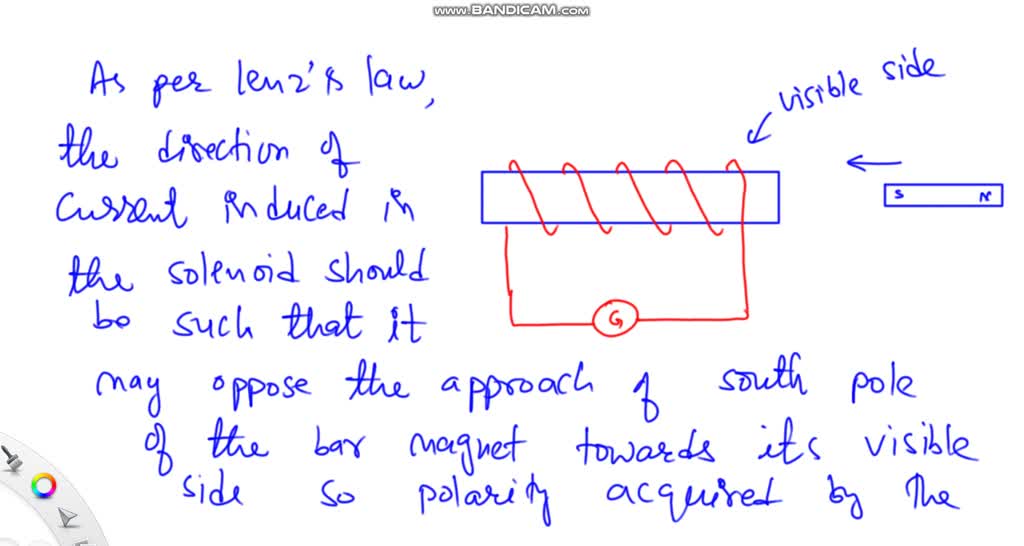 www.BANDICAM.com
As per lenz's law,
visible side
the direction of
current induced in
S N
the solenoid should
be such that it
G
may oppose the approach of south pole
of the bar magnet towards its visible
side so polarity acquired by the